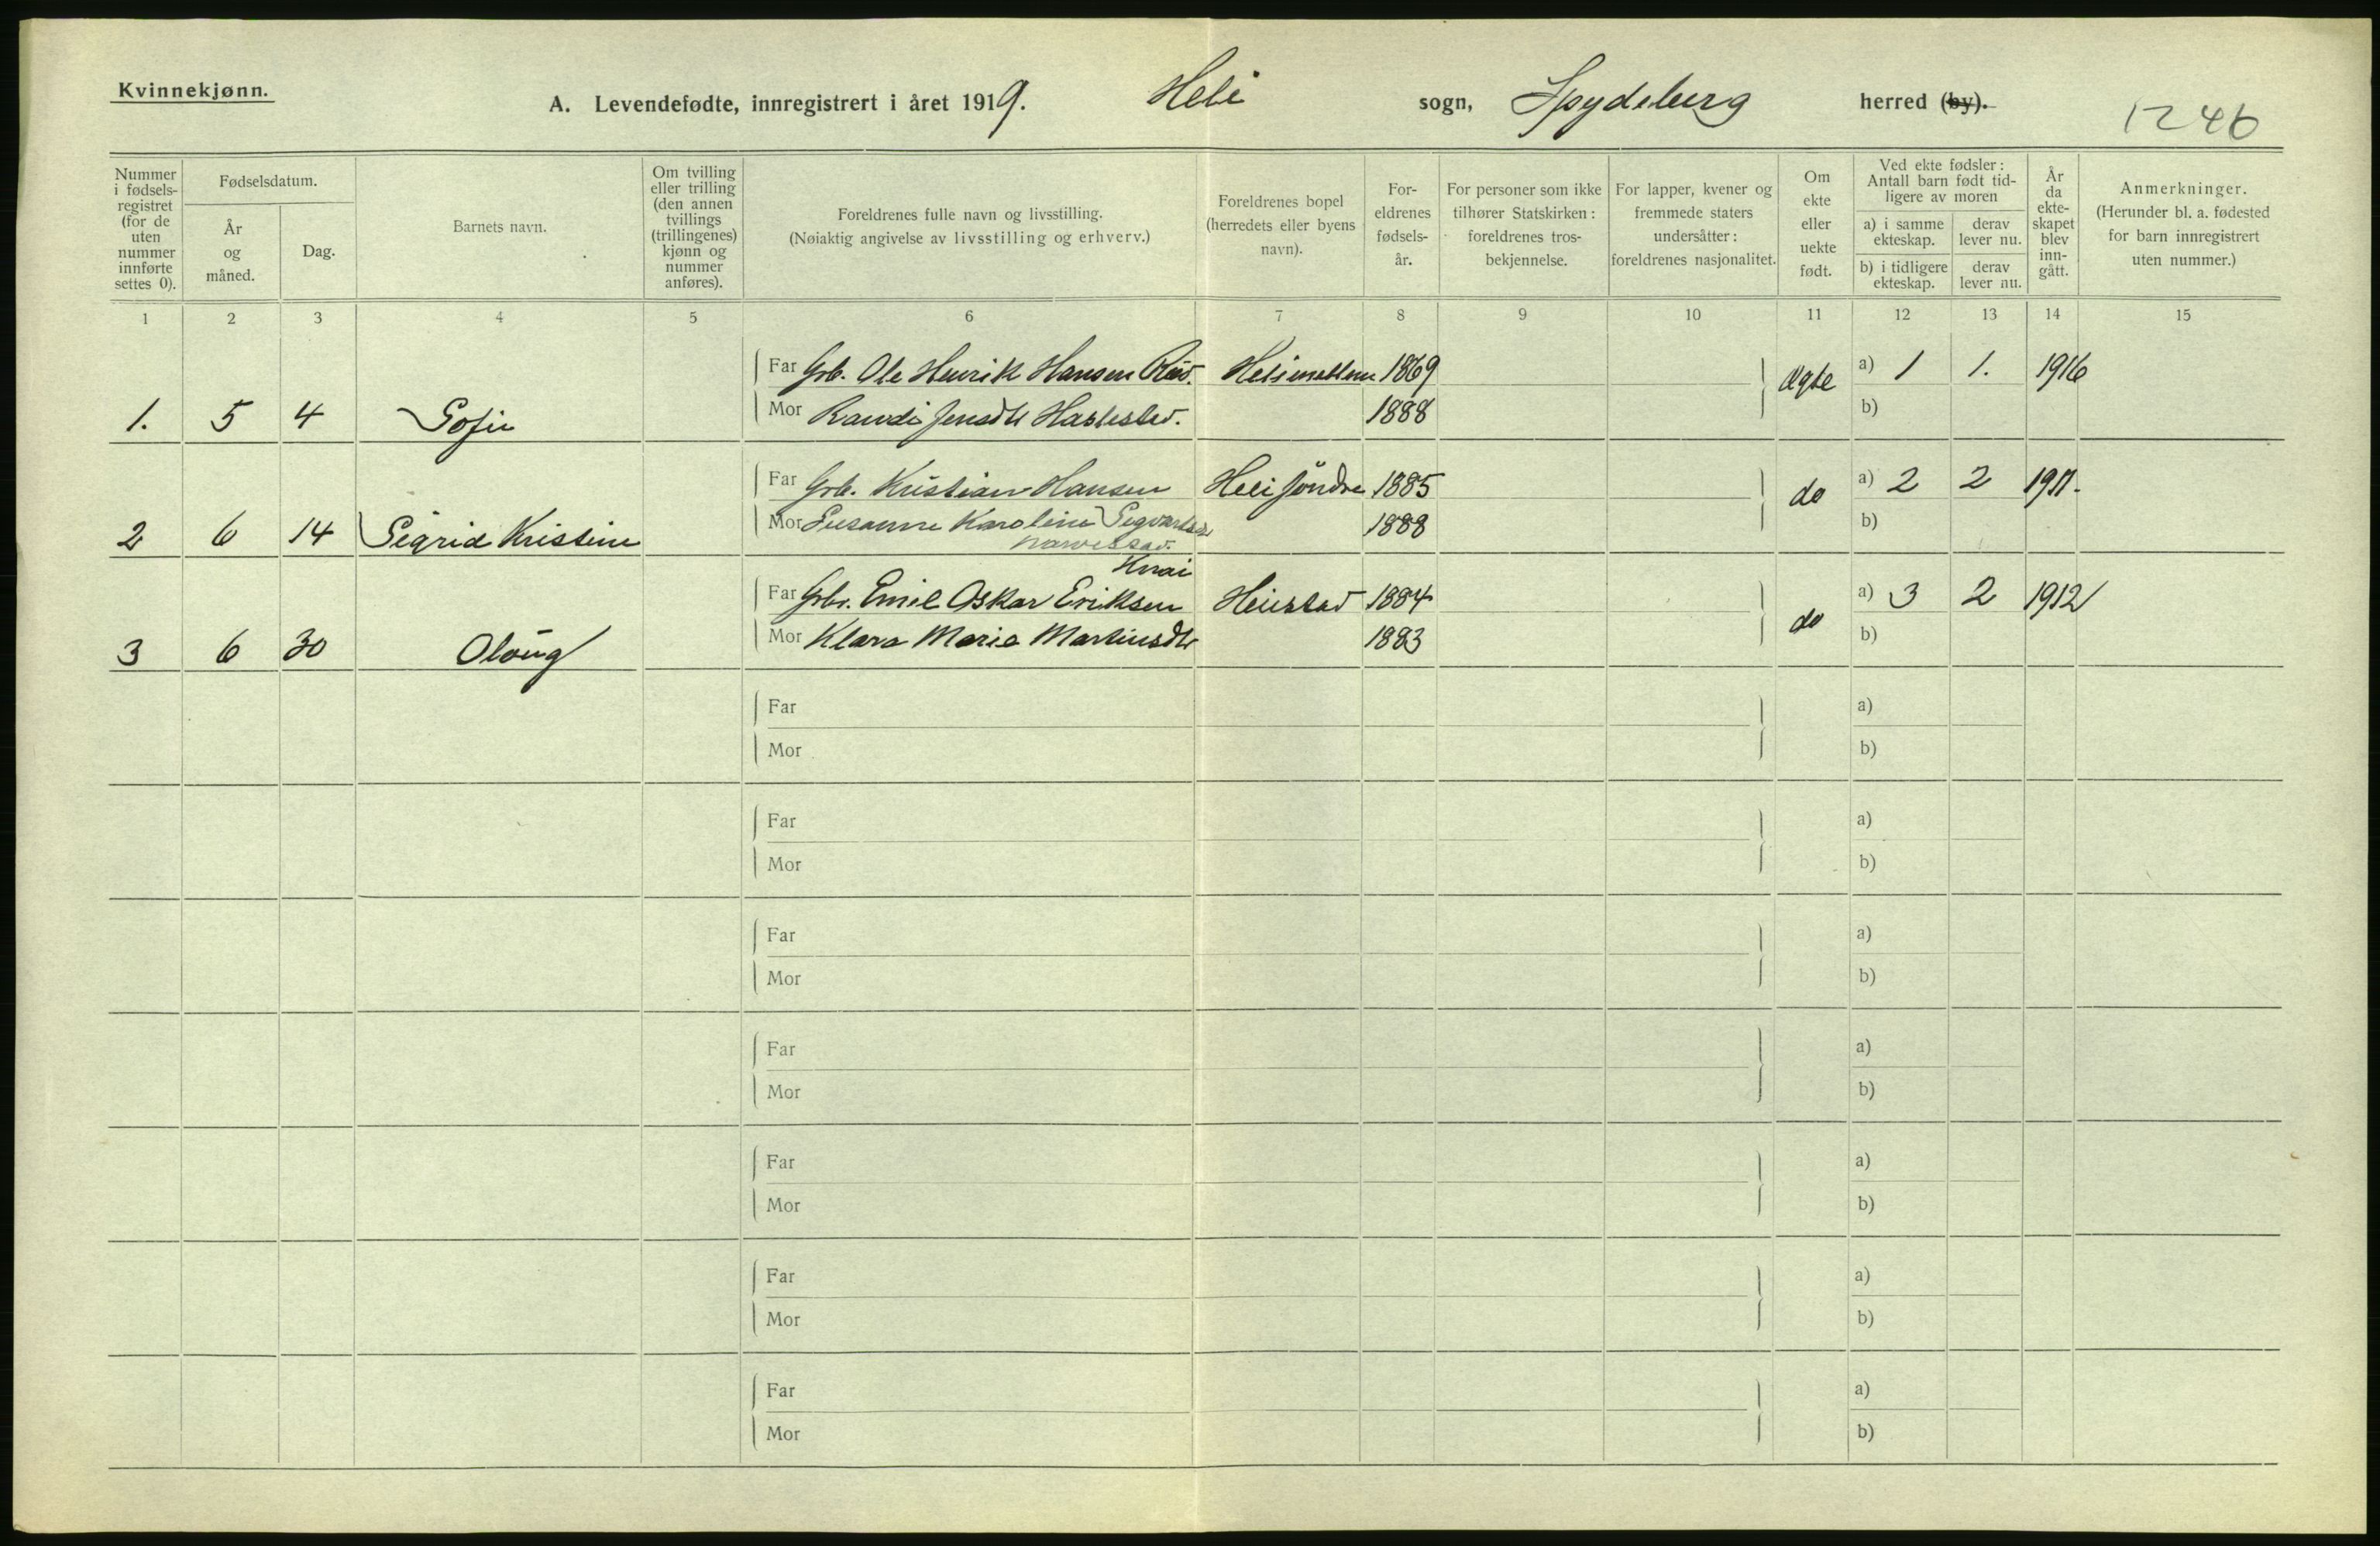 Kvinnekjønn.
A. Levendefødte, innregistrert i året 1919. Heli sogn, Spydeberg herred (by).
1246
Nummer i fødsels-registret (for de uten nummer innførte settes 0).
Fødselsdatum.
År og måned.
Dag.
Barnets navn.
Om tvilling eller trilling (den annen tvillings (trillingenes) kjønn og nummer anføres).
Foreldrenes fulle navn og livsstilling.
(Nøiaktig angivelse av livsstilling og erhverv.)
Foreldrenes bopel (herredets eller byens navn).
For-eldrenes fødsels-år.
For personer som ikke tilhører Statskirken: foreldrenes tros-bekjennelse.
For lapper, kvener og fremmede staters undersåtter: foreldrenes nasjonalitet.
Om ekte eller uekte født.
Ved ekte fødsler: Antall barn født tid-ligere av moren
a) i samme ekteskap.
derav lever nu.
b) i tidligere ekteskap.
derav lever nu.
År da ekte-skapet blev inn-gått.
Anmerkninger.
(Herunder bl. a. fødested for barn innregistrert uten nummer.)
1 2 3 4 5 6 7 8 9 10 11 12 13 14 15
Far Grb. Ole Henrik Hansen Rud. Heli mellem 1869 Ægte a) 1 1. 1916
1. 5 4 Sofie Mor Randi Jensdtr Haslestad. 1888 b)
Far Grb. Kristian Hansen Heli søndre 1885 do a) 2 2 1911.
2 6 14 Sigrid Kristine Mor Susanne Karoline 1888 b)
Far Grbr. Emil Oskar Eriksen Heiestad 1884 do a) 3 2 1912
3 6 30 Olaug Mor Klara Marie Martinsdtr 1883 b)
Far a)
Mor b)
Far a)
Mor b)
Far a)
Mor b)
Far a)
Mor b)
Far a)
Mor b)
Far a)
Mor b)
Far a)
Mor b)